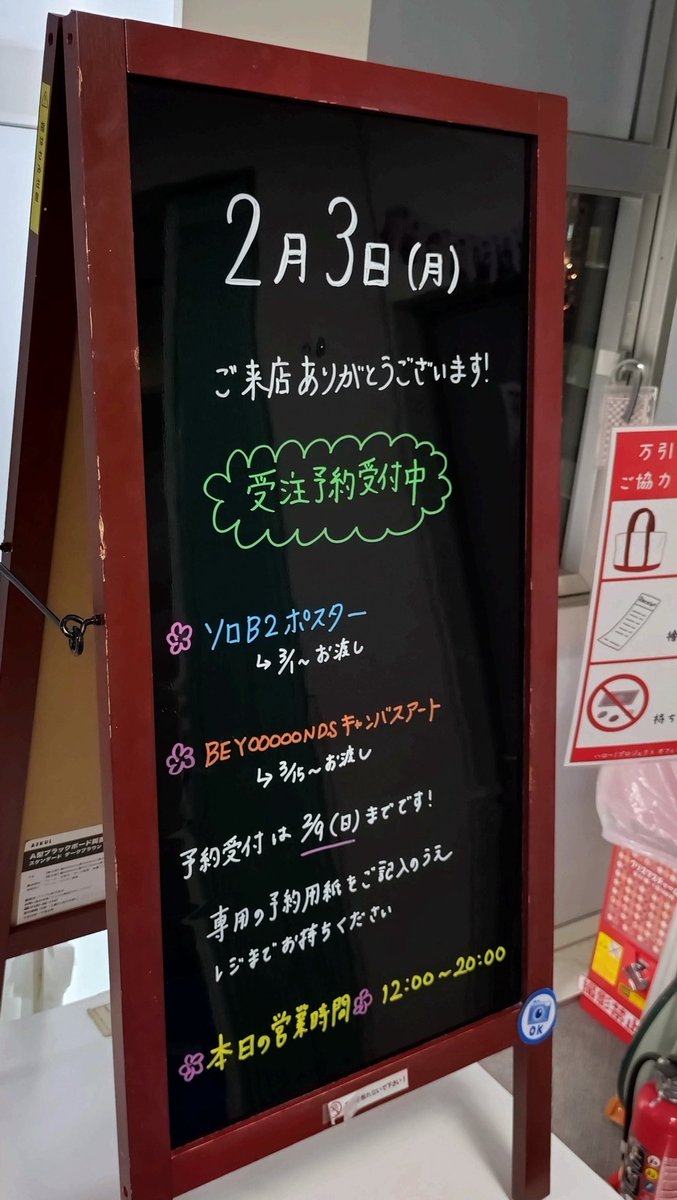 2月3日(月)
ご来店ありがとうございます!
受注予約受付中
ソロB2ポスター
↳3/1〜お渡し
BEYOOOOONDSキャンバスアート
↳3/15〜お渡し
予約受付は2/9(日)までです!
専用の予約用紙をご記入のうえ
レジまでお持ちください
本日の営業時間 12:00〜20:00
OK
万引
ご協力
持ち
A型ブラックボード両面
スタンダード ダークブラウン
撮影禁止